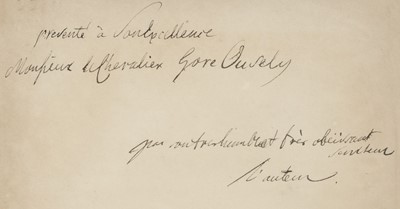 presenté à Son Excellence
Monsieur le Chevalier Gore Ousely
par son tres humble et très obéissant
serviteur
l'auteur.